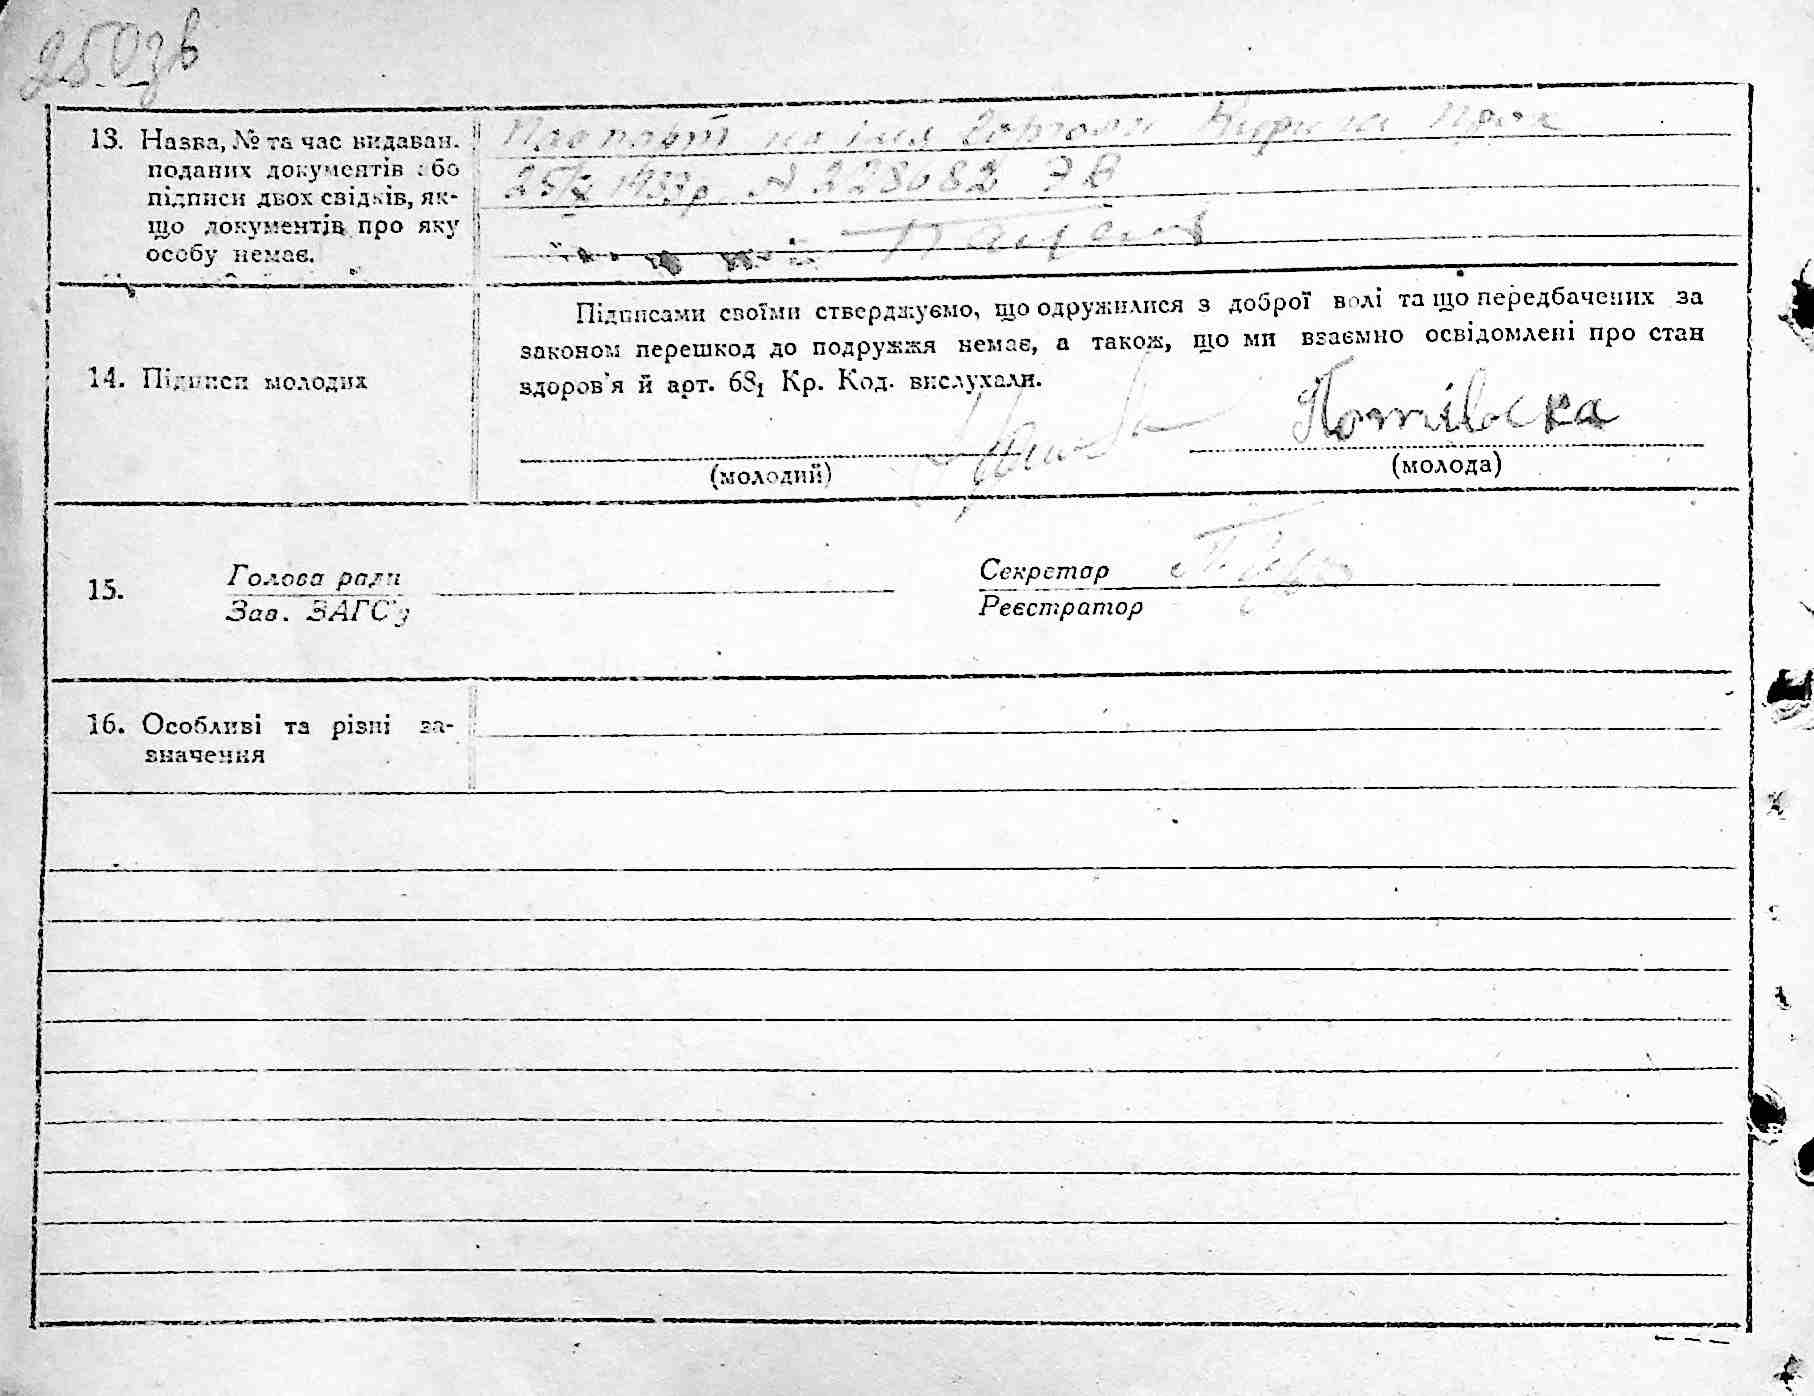 250 зв
13. Назва, № та час видаван. поданих документів або підписи двох свідків, якщо документів про яку особу немає.
Паспорт на імя Кирила
25/X 1937р. N 228082
14. Підписи молодих
Підписами своїми стверджуємо, що одружилися з доброї волі та що передбачених за
законом перешкод до подружжя немає, а також, що ми взаємно освідомлені про стан
здоров'я й арт. 68₁ Кр. Код. вислухали.
Потівська
(молодий)
(молода)
15. Голова ради
Секретар
Зав. ЗАГС'у
Реєстратор
16. Особливі та різні за-
значення